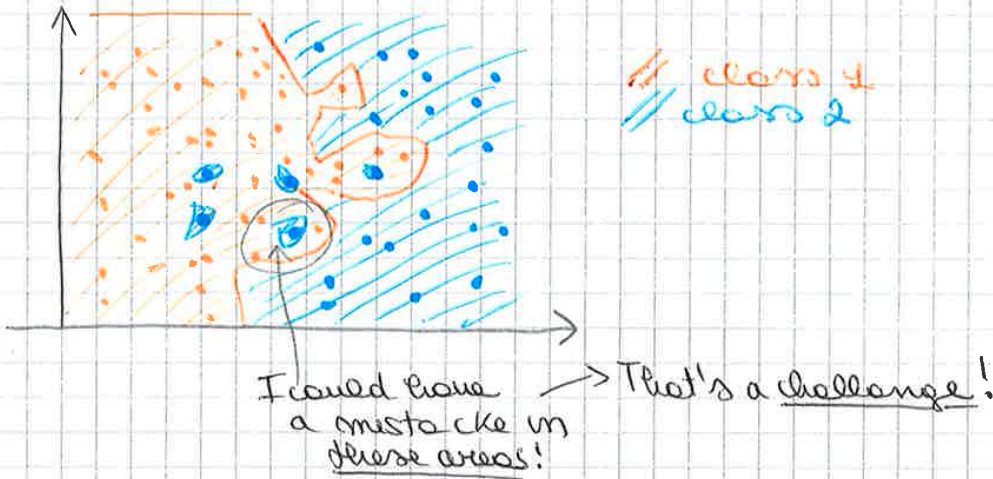 class 1
class 2
I could have
a mistacke in
these areas!
That's a challange!